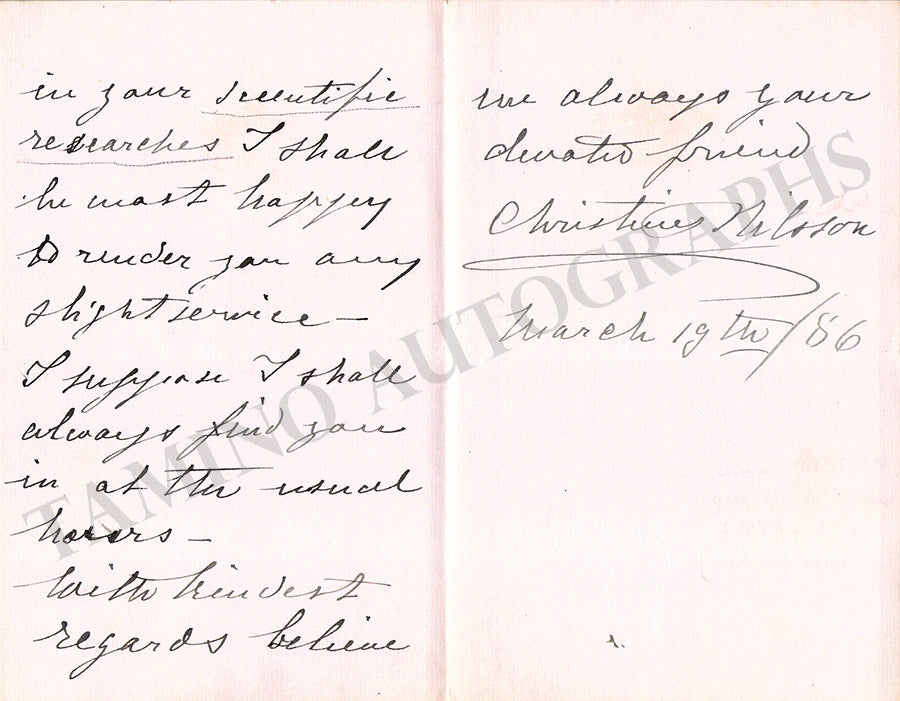 in your scientific
researches I shall
be most happy
to render you any
slight service —
I suppose I shall
always find you
in at the usual
hours —
With kindest
regards believe
me always your
devoted friend
Christine Nilsson
March 19th/86
TAMINO AUTOGRAPHS